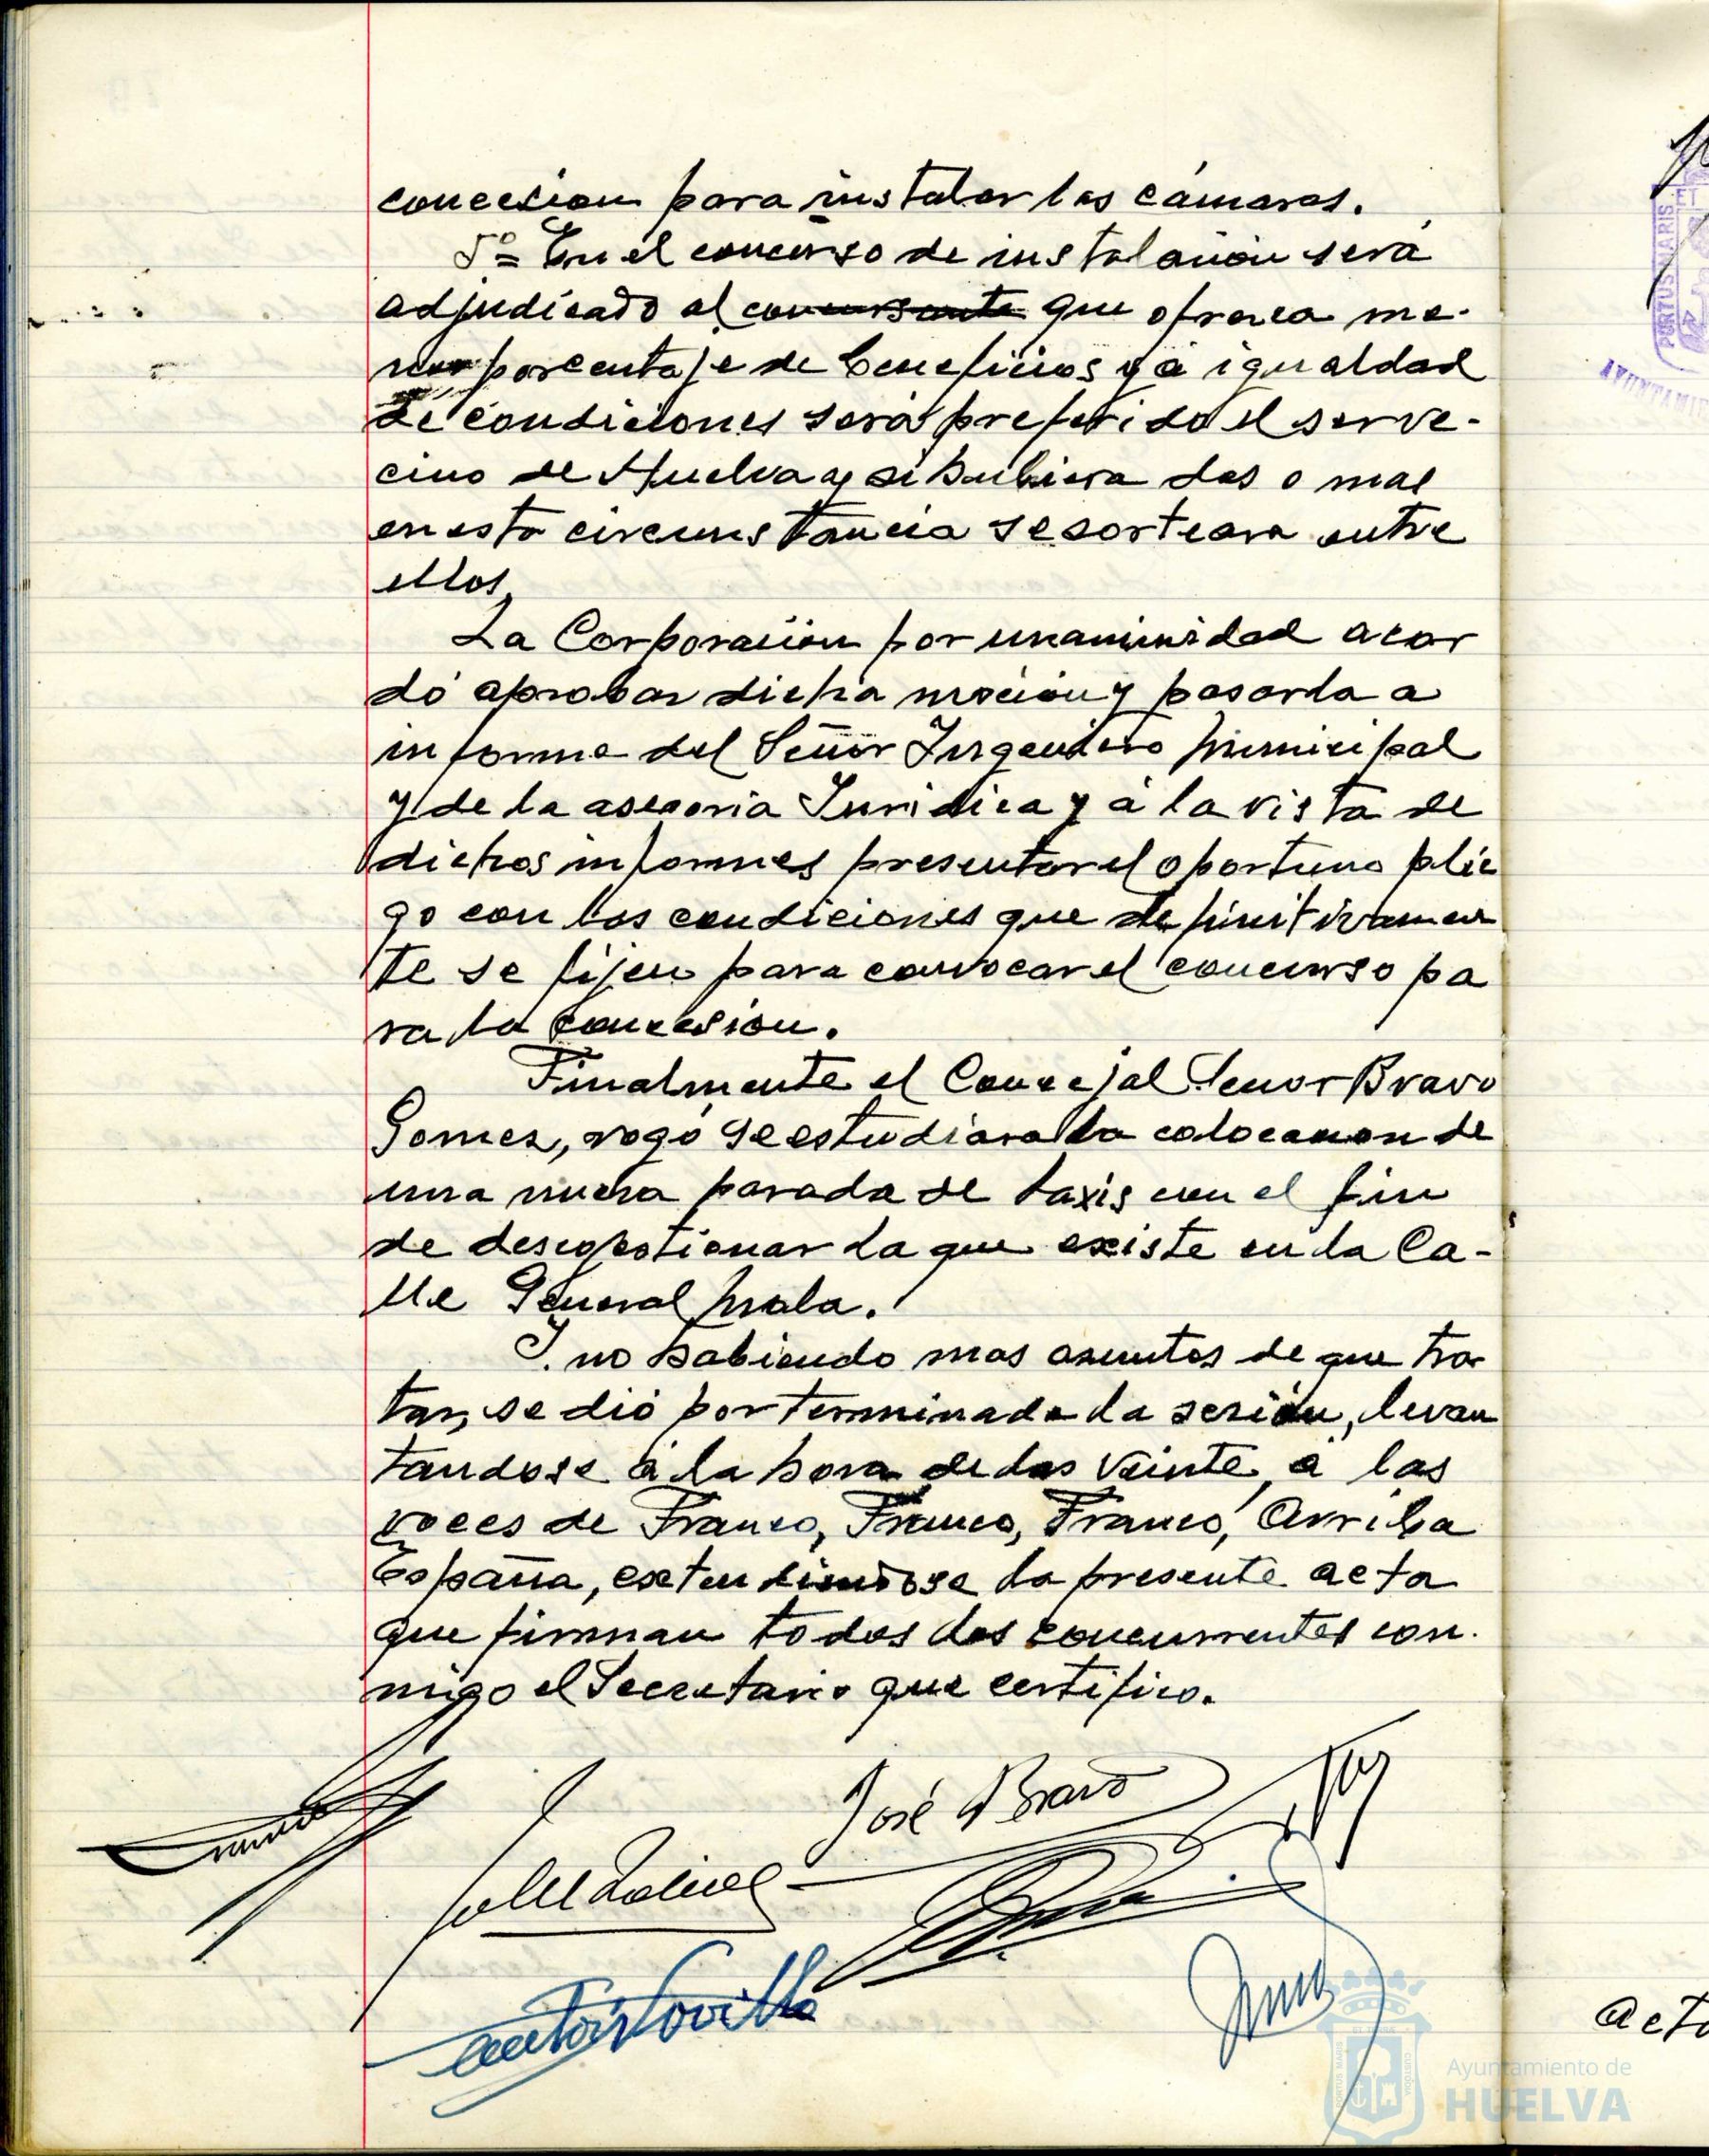 concesion para instalar las cámaras.
5º= En el concurso de instalación será
adjudicado al concursante que ofrezca me-
nor porcentaje de beneficios y á igualdad
de condiciones será preferido el ser ve-
cino de Huelva y si hubiera dos o mas
en esta circunstancia se sorteara entre
ellos.
La Corporación por unanimidad acor
dó aprobar dicha moción y pasarla a
informe del Señor Ingeniero Municipal
y de la asesoria Juridica y á la vista de
dichos informes presentar el oportuno plie
go con las condiciones que definitivamen
te se fijen para convocar el concurso pa
ra la concesion.
Finalmente el Concejal Señor Bravo
Gomez, rogó se estudiara la colocacion de
una nueva parada de taxis con el fin
de descogestionar la que existe en la Ca-
lle General Mola.
Y no habiendo mas asuntos de que tra
tar, se dió por terminada la sesión, levan
tandose á la hora de las veinte, a las
voces de Franco, Franco, Franco, Arriba
España, extendiendose la presente acta
que firman todos los concurrentes con-
migo el Secretario que certifico.
José Bravo
PORTUS MARIS ET
AYUNTAMIE
Acta
Ayuntamiento de
HUELVA